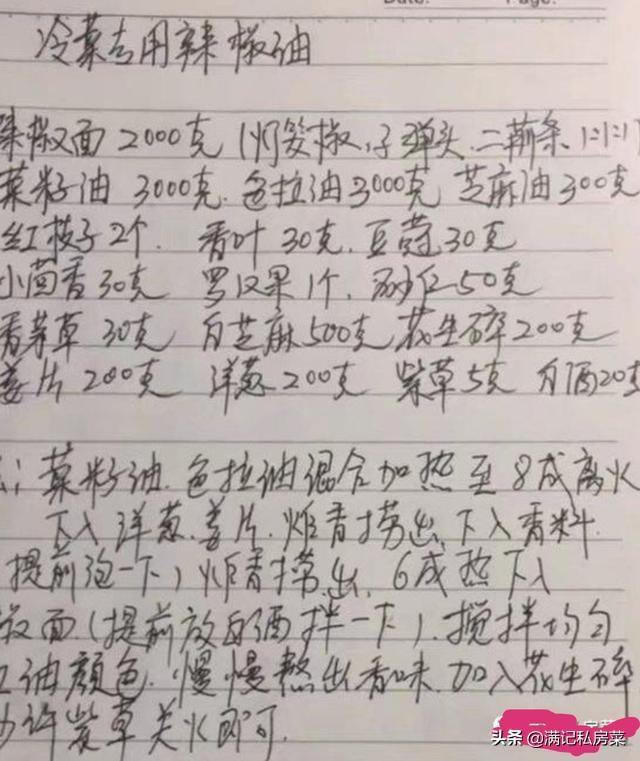 Date: Page:
冷菜专用辣椒油
辣椒面 2000克 (灯笼椒、子弹头、二荆条 1:1:1
菜籽油 3000克. 色拉油3000克 芝麻油300克
红枝子2个. 香叶30克. 豆蔻30克
小茴香30克 罗汉果1个. 砂仁50克
香茅草30克 白芝麻500克 花生碎200克
姜片200克 洋葱200克 紫草5克 白酒20克
: 菜籽油.色拉油混合加热至8成离火
下入洋葱.姜片.炸香捞出.下入香料
提前泡一下)炸香捞出.6成热下入
椒面.(提前放白酒拌一下).搅拌均匀
油颜色.慢慢熬出香味.加入花生碎
少许紫草关火即可.
头条 @满记私房菜